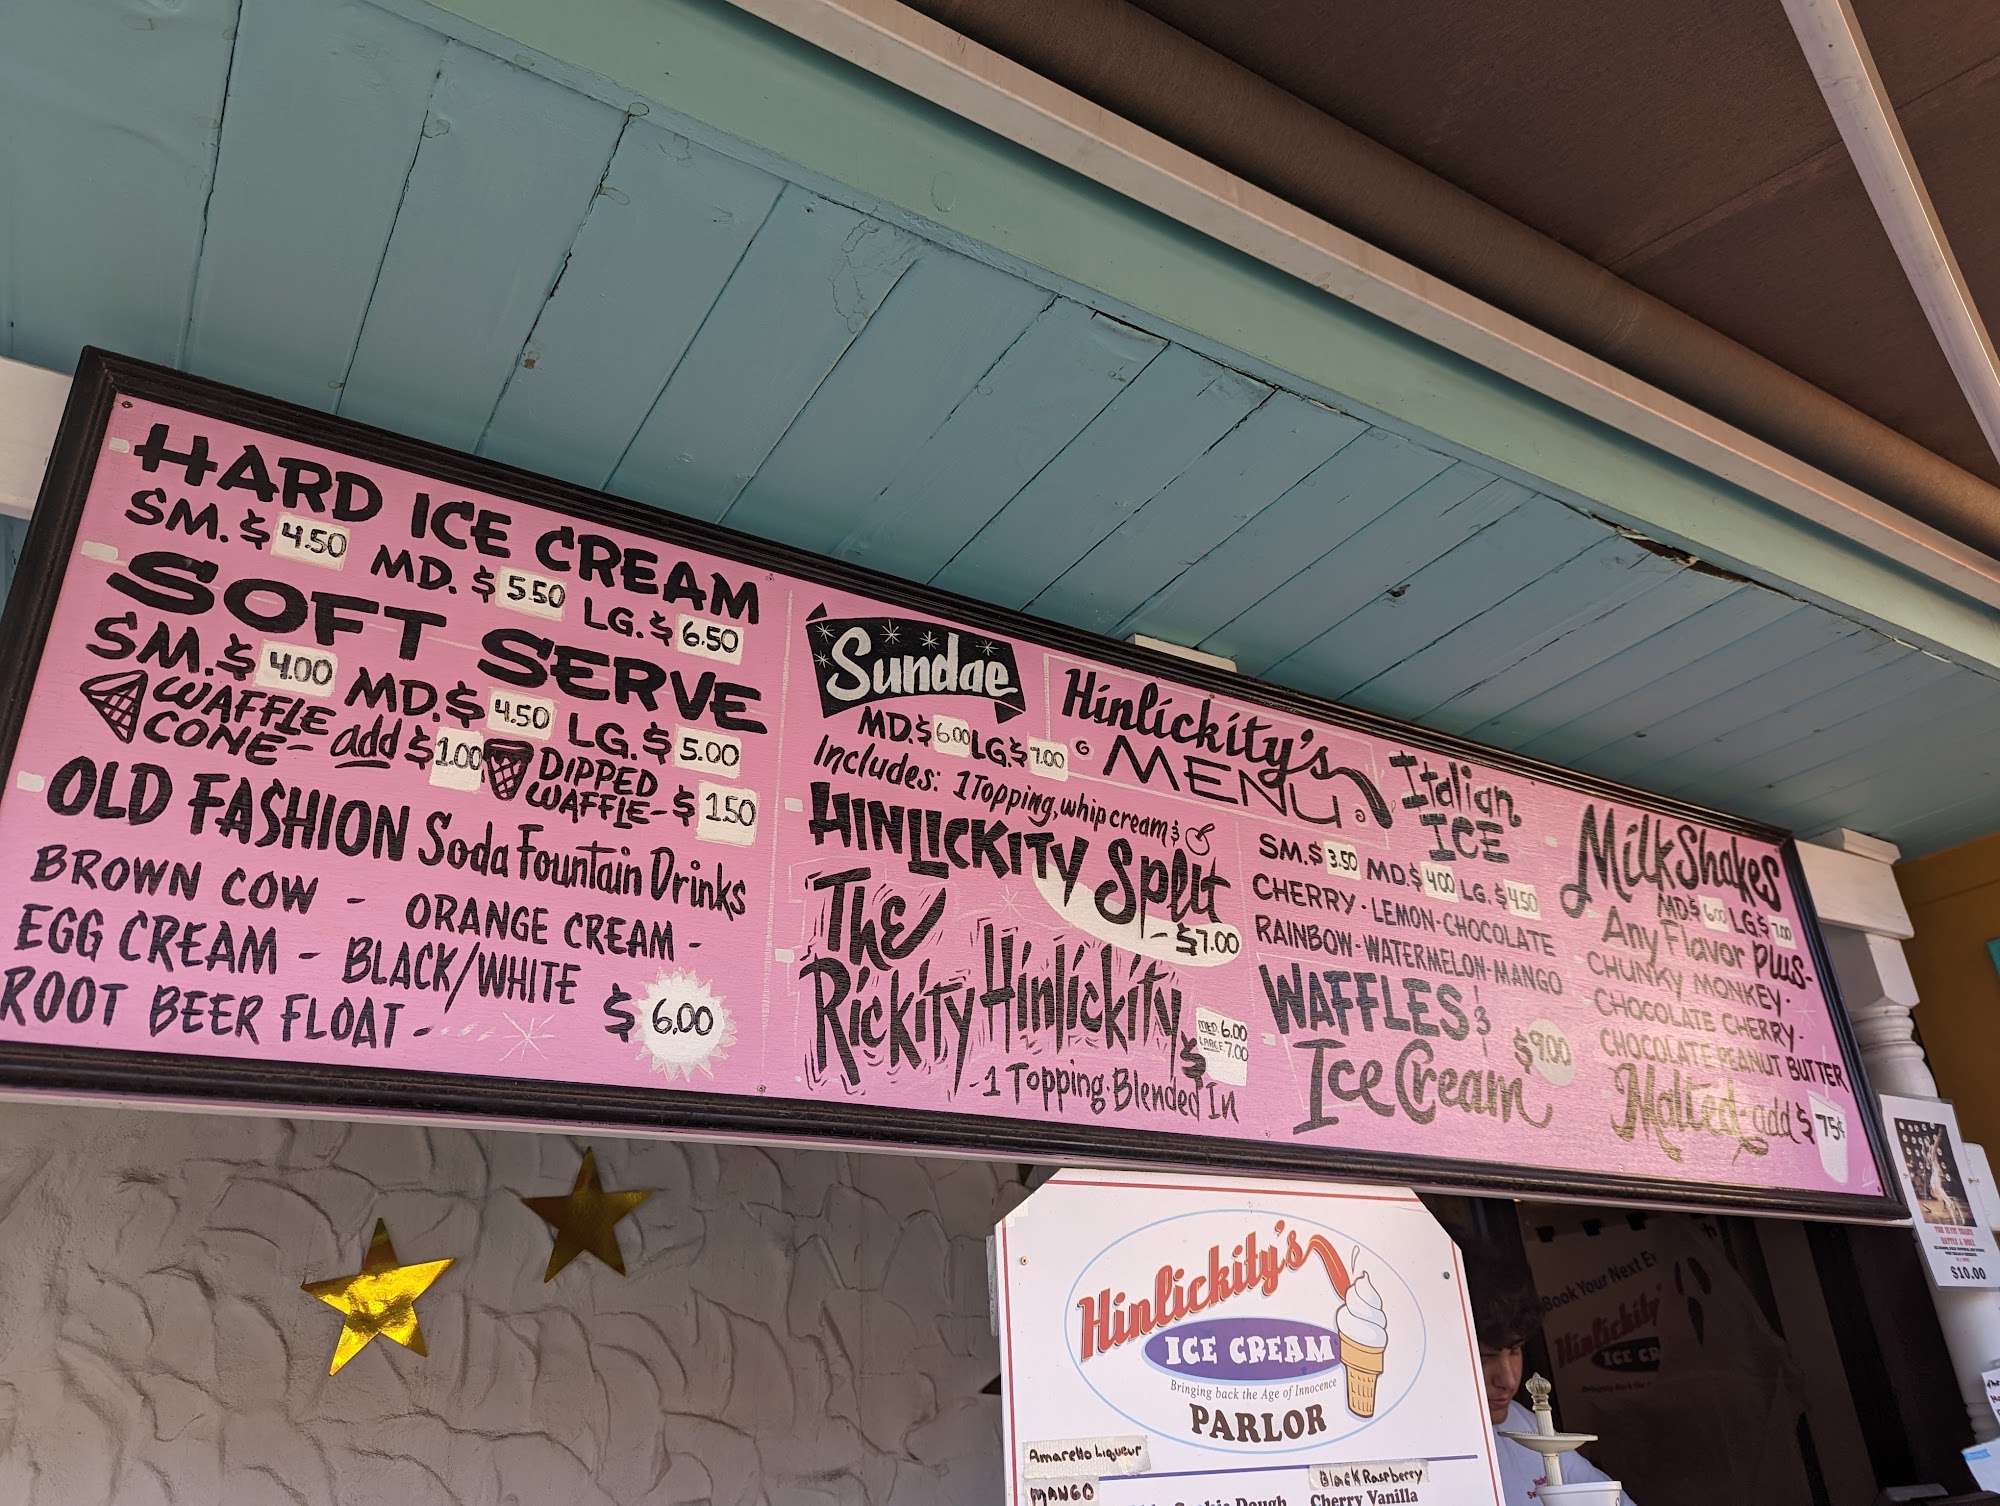 HARD ICE CREAM
SM. $ 4.50 MD. $ 5.50 LG. $ 6.50
SOFT SERVE
SM. $ 4.00 MD. $ 4.50 LG. $ 5.00
WAFFLE CONE - add $ 1.00
DIPPED WAFFLE - $ 1.50
OLD FASHION Soda Fountain Drinks
BROWN COW - ORANGE CREAM -
EGG CREAM - BLACK/WHITE
ROOT BEER FLOAT - $ 6.00
Sundae
MD. $ 6.00 LG. $ 7.00
Includes: 1 Topping, whip cream &
HINLICKITY Split
- $7.00
The
Rickity Hinlickity
$ MED. 6.00
LARGE 7.00
- 1 Topping Blended In
Hinlickity's
MENU
Italian
ICE
SM. $ 3.50 MD. $ 4.00 LG. $ 4.50
CHERRY - LEMON - CHOCOLATE
RAINBOW - WATERMELON - MANGO
WAFFLES &
Ice Cream $9.00
MilkShakes
MD. $ 6.00 LG. $ 7.00
Any Flavor Plus-
CHUNKY MONKEY -
CHOCOLATE CHERRY -
CHOCOLATE PEANUT BUTTER
Malted - add $ 75¢
Hinlickity's
ICE CREAM
Bringing back the Age of Innocence
PARLOR
Amaretto Liqueur
MANGO
Black Raspberry
Cookie Dough
Cherry Vanilla
Book Your Next
Hinlickity'
ICE CR
$10.00